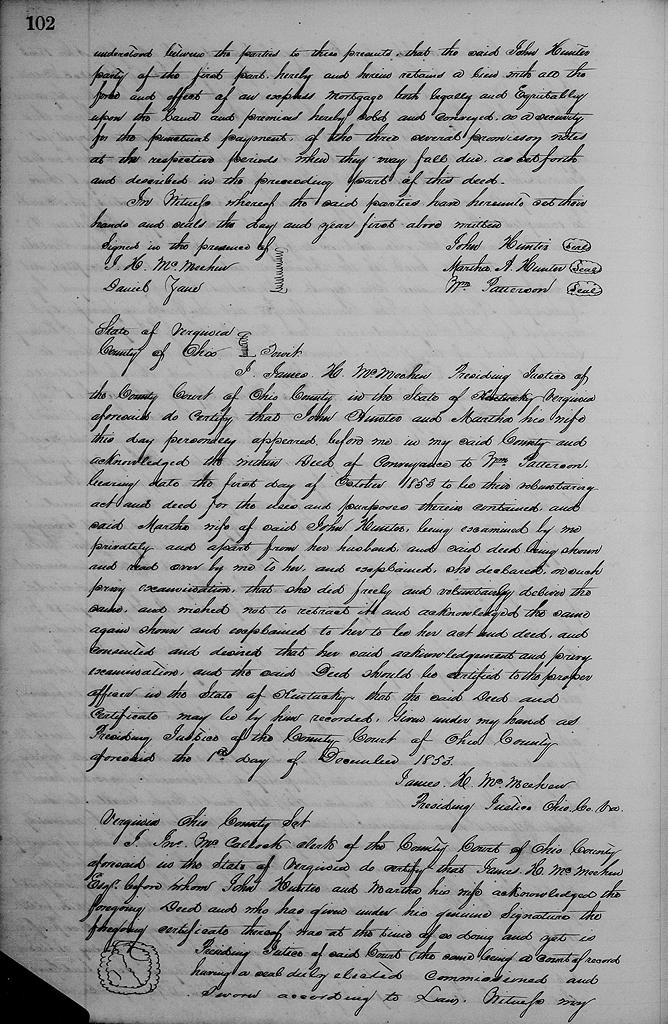 102
understood between the parties to these presents that the said John Hunter
party of the first part, hereby and herein retains a lien with all the
force and effect of an express Mortgage both legally and Equitably
upon the Land and premises hereby sold and conveyed, as a security
for the punctual payment, of the three several promissory notes
at the respective periods when they may fall due, as set forth
and described in the preceeding part of this deed.
In Witness whereof the said parties have hereunto set their
hands and seals the day and year first above written
Signed in the presence of John Hunter Seal
J. H. McMechen Martha A. Hunter Seal
Daniel Zane Wm Patterson Seal
State of Virginia
County of Ohio Towit
I, James H. McMechen Presiding Justice of
the County Court of Ohio County in the State of Kentucky Virginia
aforesaid do certify, that John Hunter and Martha his wife
this day personaly appeared before me in my said County and
acknowledged the within Deed of Conveyance to Wm Patterson,
bearing date the first day of October 1853 to be their voluntary
act and deed for the uses and purposes therein contained and
said Martha wife of said John Hunter, being examined by me
privately and apart from her husband and said deed being shown
and read over by me to her, and explained, she declared on such
privy examination, that she did freely and voluntarily deliver the
same, and wished not to retract it and acknowledged the same
again shown and explained to her to be her act and deed, and
consented and desired that her said acknowledgement and privy
examination, and the said Deed should be certified to the proper
officer in the State of Kentucky, that the said Deed and
Certificate may be by him recorded. Given under my hand as
Presiding Justice of the County Court of Ohio County
aforesaid the 1st day of December 1853.
James H. McMechen
Presiding Justice Ohio Co. Va.
Virginia Ohio County Sct
I Jno. McColloch clerk of the County Court of Ohio County
aforesaid in the State of Virginia do certify that James H. McMechen
Esqr. before whom John Hunter and Martha his wife acknowledged the
foregoing Deed and who has given under his genuine signature the
foregoing certificate thereof was at the time of so doing and yet is
Presiding Justice of said Court (the same being a court of record
having a seal duly elected Commissioned and
Sworn according to Law. Witness my